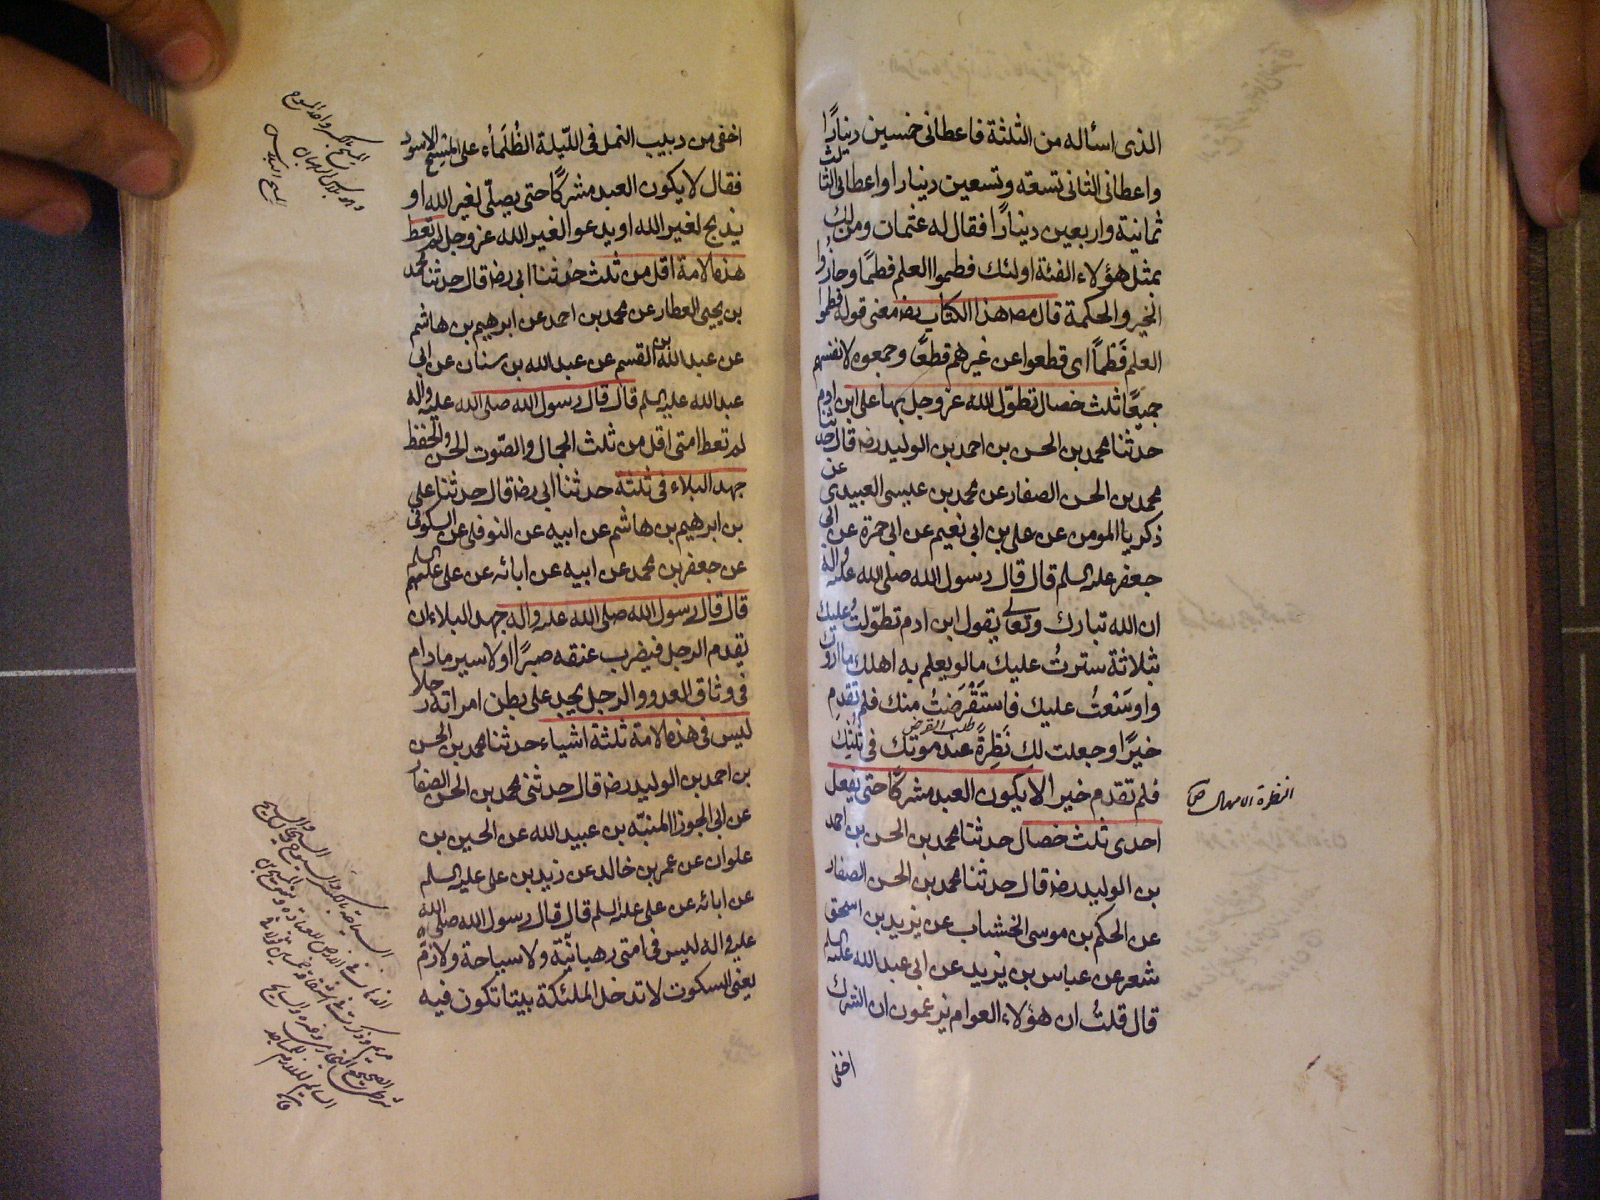 الذى اسئاله من الثلثة فاعطانى خمسين دينارًا
واعطانى الثانى تسعة وتسعين دينارا واعطانى الثالث
ثمانية واربعين دينارًا فقال له عثمان ومن لك
بمثل هؤلاء الفئة اولئك فطموا العلم فطمًا وحازوا
الخير والحكمة قال مص هذا الكتاب رضه معنى قوله فطموا
العلم فَطْماً اى قطعوا عن غيرهم قطعًا وجمعوه لانفسهم
جميعًا ثلث خصال تطوّل الله عز وجل بها على ابن ادم
حدثنا محمد بن الحسن بن احمد بن الوليد رضه قال حدثنا
محمد بن الحسن الصفار عن محمد بن عيسى العبيدى عن
ذكريا المومن عن على بن ابى نعيم عن ابى حمزة عن ابى
جعفر عليه السلم قال قال رسول الله صلى الله عليه واله
ان الله تبارك وتعالى يقول ابن ادم تطوّلت عليك
بثلاثة سترتُ عليك مالو يعلم به اهلك ما اروك
واوسَعْتُ عليك فاستَقْرَضتُ منك فلم تقدم
طلب القرض
خيرًا وجعلت لك نَظِرةً عند موتك فى ثلثك
فلم تقدم خيرا لا يكون العبد مشركًا حتى يفعل
احدى ثلث خصال حدثنا محمد بن الحسن بن احمد
بن الوليد رضه قال حدثنا محمد بن الحسن الصفار
عن الحكم بن موسى الخشاب عن يزيد بن اسحق
شعر عن عباس بن يزيد عن ابى عبد الله عليه السلم
قال قلتُ ان هؤلاء العوام يزعمون ان الشرك
اخفى
النظرة الامهال ص
اخفى من دبيب النمل فى اللّيلة الظُلَماء على المِسْح الاسود
فقال لا يكون العبد مشركًا حتى يصلّى لغير الله او
يذبح لغير الله او يدعو لغير الله عز وجل لم تعط
هذه الامة اقل من ثلث حدثنا ابى رضه قال حدثنا محمد
بن يحيى العطار عن محمد بن احمد عن ابرهيم بن هاشم
عن عبد الله بن القسم عن عبد الله بن سنان عن ابى
عبد الله عليه السلم قال قال رسول الله صلى الله عليه واله
لم تعط امتى اقل من ثلث الجمال والصّوت الحسن والحفظ
جهد البلاء فى ثلثة حدثنا ابى رضه قال حدثنا على
بن ابرهيم بن هاشم عن ابيه عن النوفلى عن السكونى
عن جعفر بن محمد عن ابيه عن ابائه عن على عليهم السلم
قال قال رسول الله صلى الله عليه واله جهد البلاء ان
يقدم الرجل فيضرب عنقه صبرًا والاسير مادام
فى وثاق العدو والرجل يجد على بطن امراته رجلا
ليس فى هذه الامة ثلثة اشياء حدثنا محمد بن الحسن
بن احمد بن الوليد رضه قال حدثنى محمد بن الحسن الصفار
عن ابى الجوزا المنبّه بن عبيد الله عن الحسين بن
علوان عن عمر بن خالد عن زيد بن على عليه السلم
عن ابائه عن على عليه السلم قال قال رسول الله صلى الله
عليه واله ليس فى امتى رهبانيّة ولا سياحة ولا زمّ
يعنى السكوت لا تدخل الملئكة بيتا تكون فيه